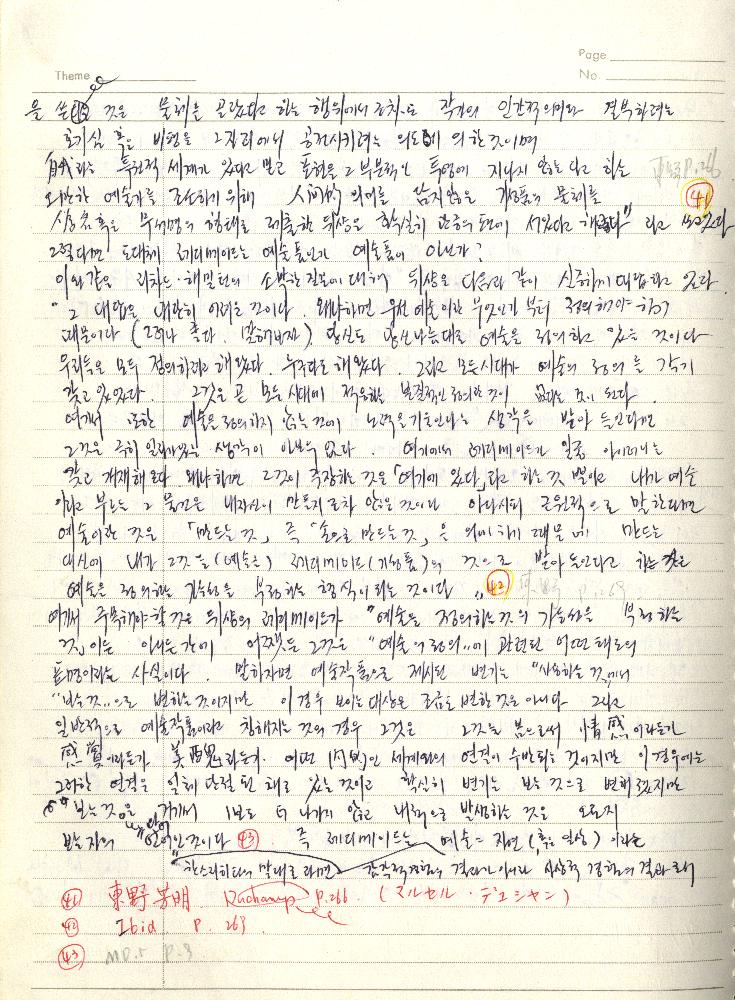 Page
Theme
No.
을 쓴 것은 물체를 골랐다고 하는 행위에서조차도 작가의 인간적 의미와 결부하려는
호기심 혹은 비평을 그 자리에서 공전시키려는 의도에 의한 것이며
自我라는 특권적 세계가 있다고 믿고 표현을 그 부분적인 투영에 지나지 않는다고 하는
오만한 예술가를 조소하기 위해 人間的 의미를 담지 않은 기성품의 물체를
혹은 무서명의 형태로 제출한 뒤샹은 확실히 한층 더 서있다고 해 " 라고 쓰고 있다 ㊶
그렇다면 도대체 레디메이드는 예술품인가 예술품이 아닌가?
이와 같은 리차드·해밀턴의 소박한 질문에 대해 뒤샹은 다음과 같이 신중하게 대답하고 있다.
"그 대답은 대단히 어려운 것이다. 왜냐하면 우선 예술이란 무엇인가 부터 정의해야 하기
때문이다 (그러나 좋다. 말해보자). 당신도 당신 나름대로 예술을 정의하고 있는 것이다
우리들은 모두 정의하려고 해왔다. 누구나 해왔다. 그리고 모든 시대가 예술의 정의를 각기
갖고 있었다. 그것은 곧 모든 시대에 적용하는 본질적인 정의란 것이 없다는 것이 된다.
여기서 또한 예술을 정의하지 않는 것에 노력을 기울인다는 생각을 받아 들인다면
그것은 극히 일리있는 생각이 아닐 수 없다. 여기에서 레디메이드가 일종 아이러니를
갖고 개재해 온다. 왜냐하면 그것이 주장하는 것은 「여기에 있다」라고 하는 것 뿐이고 내가 예술
이라고 부르는 그 물건은 내 자신이 만들지조차 않은 것이다 아다시피 근원적으로 말한다면
예술이란 것은 「만드는 것」, 즉 「손으로 만드는 것」,을 의미하기 때문에 만드는
대신에 내가 그것을(예술은) 레디메이드(기성품)의 것으로 받아 들인다고 하는 것은
예술을 정의하는 가능성을 부정하는 형식이 되는 것이다" ㊷
여기서 주목해야 할 것은 뒤샹의 레디메이드가 "예술을 정의하는 것의 가능성을 부정하는
것"이든 아니든 간에 어쨌든 그것은 "예술의 정의"에 관련된 어떤 태도의
표명이라는 사실이다. 말하자면 예술작품으로 제시된 변기는 "사용하는 것"에서
"보는 것"으로 변하는 것이지만 이 경우 보이는 대상은 조금도 변한 것은 아니다 그리고
일반적으로 예술작품이라고 칭해지는 것의 경우 그것은 그것을 봄으로써 情感이라든가
感覺이라든가 美醜라든가 어떤 內的인 세계와의 연결이 수반되는 것이지만 이 경우에는
그러한 연결은 일체 단절된 채로 있는 것이고 확실히 변기는 보는 것으로 변해 졌지만
보는 것은 거기서 1보도 더 나가지 않고 내적으로 발생하는 것은 오로지
보는 자의 언어인 것이다 ㊸ 즉 레디메이드는 예술 = 자연(혹은 일상)이라는
한스리히터의 말대로라면 감각적 의 결과가 아니라 사상적 경험의 결과로서
㊶ 東野芳明 Duchamp P.266 (マルセル・デュシャン)
㊷ Ibid P. 269
㊸ M.D.T P.3